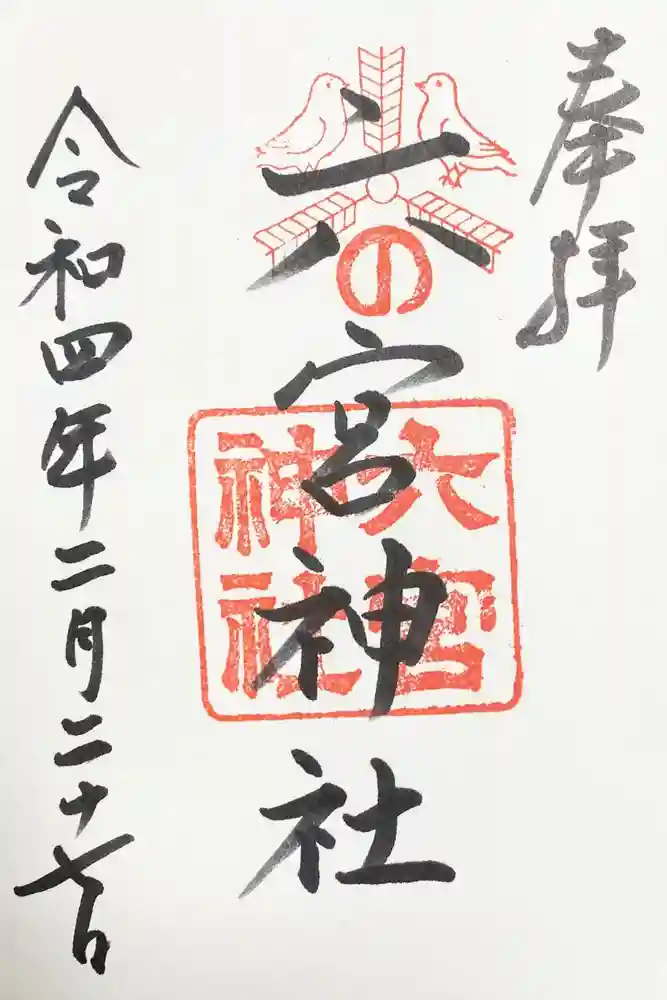 奉拝
六
の
宮神社
六宮
神社
令和四年二月二十七日